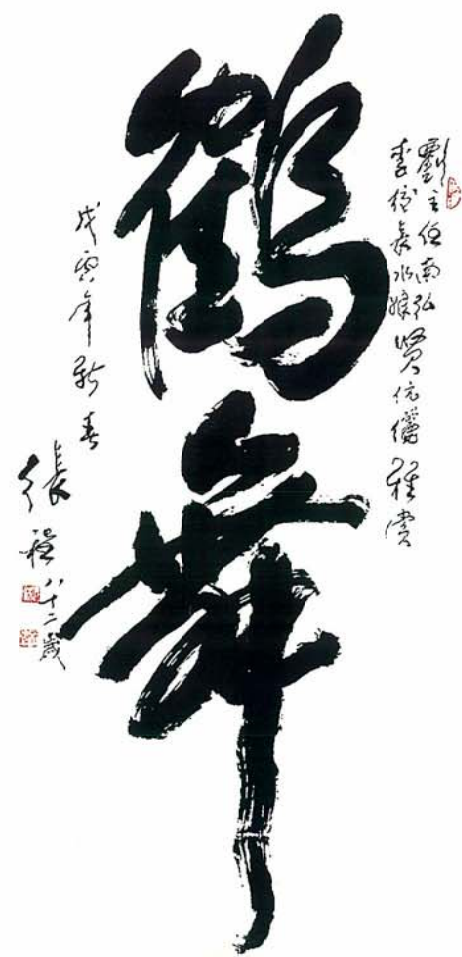 劉主任南弘
李長水娘
賢伉儷雅賞
鶴舞
戊寅年新春
張 八十二歲